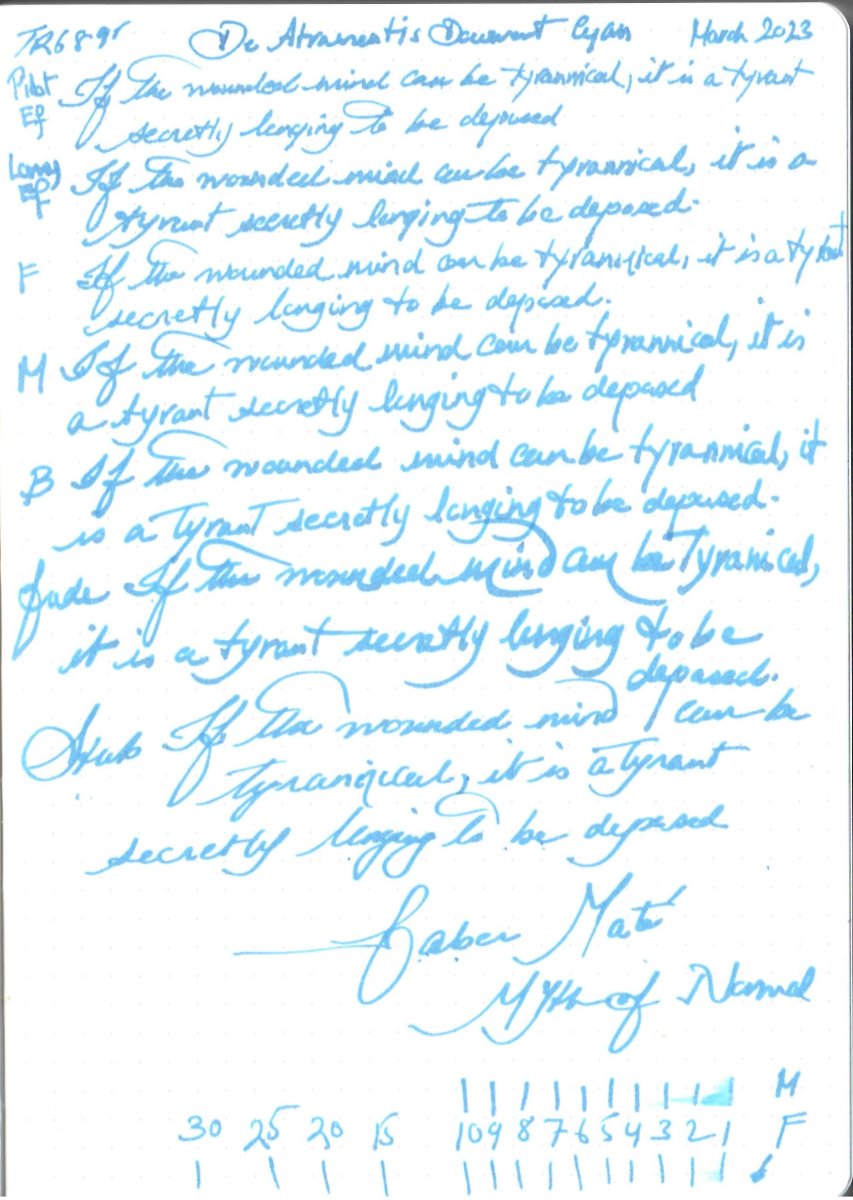 TR68gr De Atramentis Document Cyan March 2023
Pilot If the wounded mind can be tyrannical, it is a tyrant
EF secretly longing to be deposed
Lamy If the wounded mind can be tyrannical, it is a
EF tyrant secretly longing to be deposed.
F If the wounded mind can be tyrannical, it is a tyrant
secretly longing to be deposed.
M If the wounded mind can be tyrannical, it is
a tyrant secretly longing to be deposed
B If the wounded mind can be tyrannical, it
is a tyrant secretly longing to be deposed.
fude If the wounded mind can be tyranical,
it is a tyrant secretly longing to be
deposed.
Stub If the wounded mind can be
tyrannical, it is a tyrant
secretly longing to be deposed
Gabor Maté
Myth of Normal
M
30 25 20 15 10 9 8 7 6 5 4 3 2 1 F